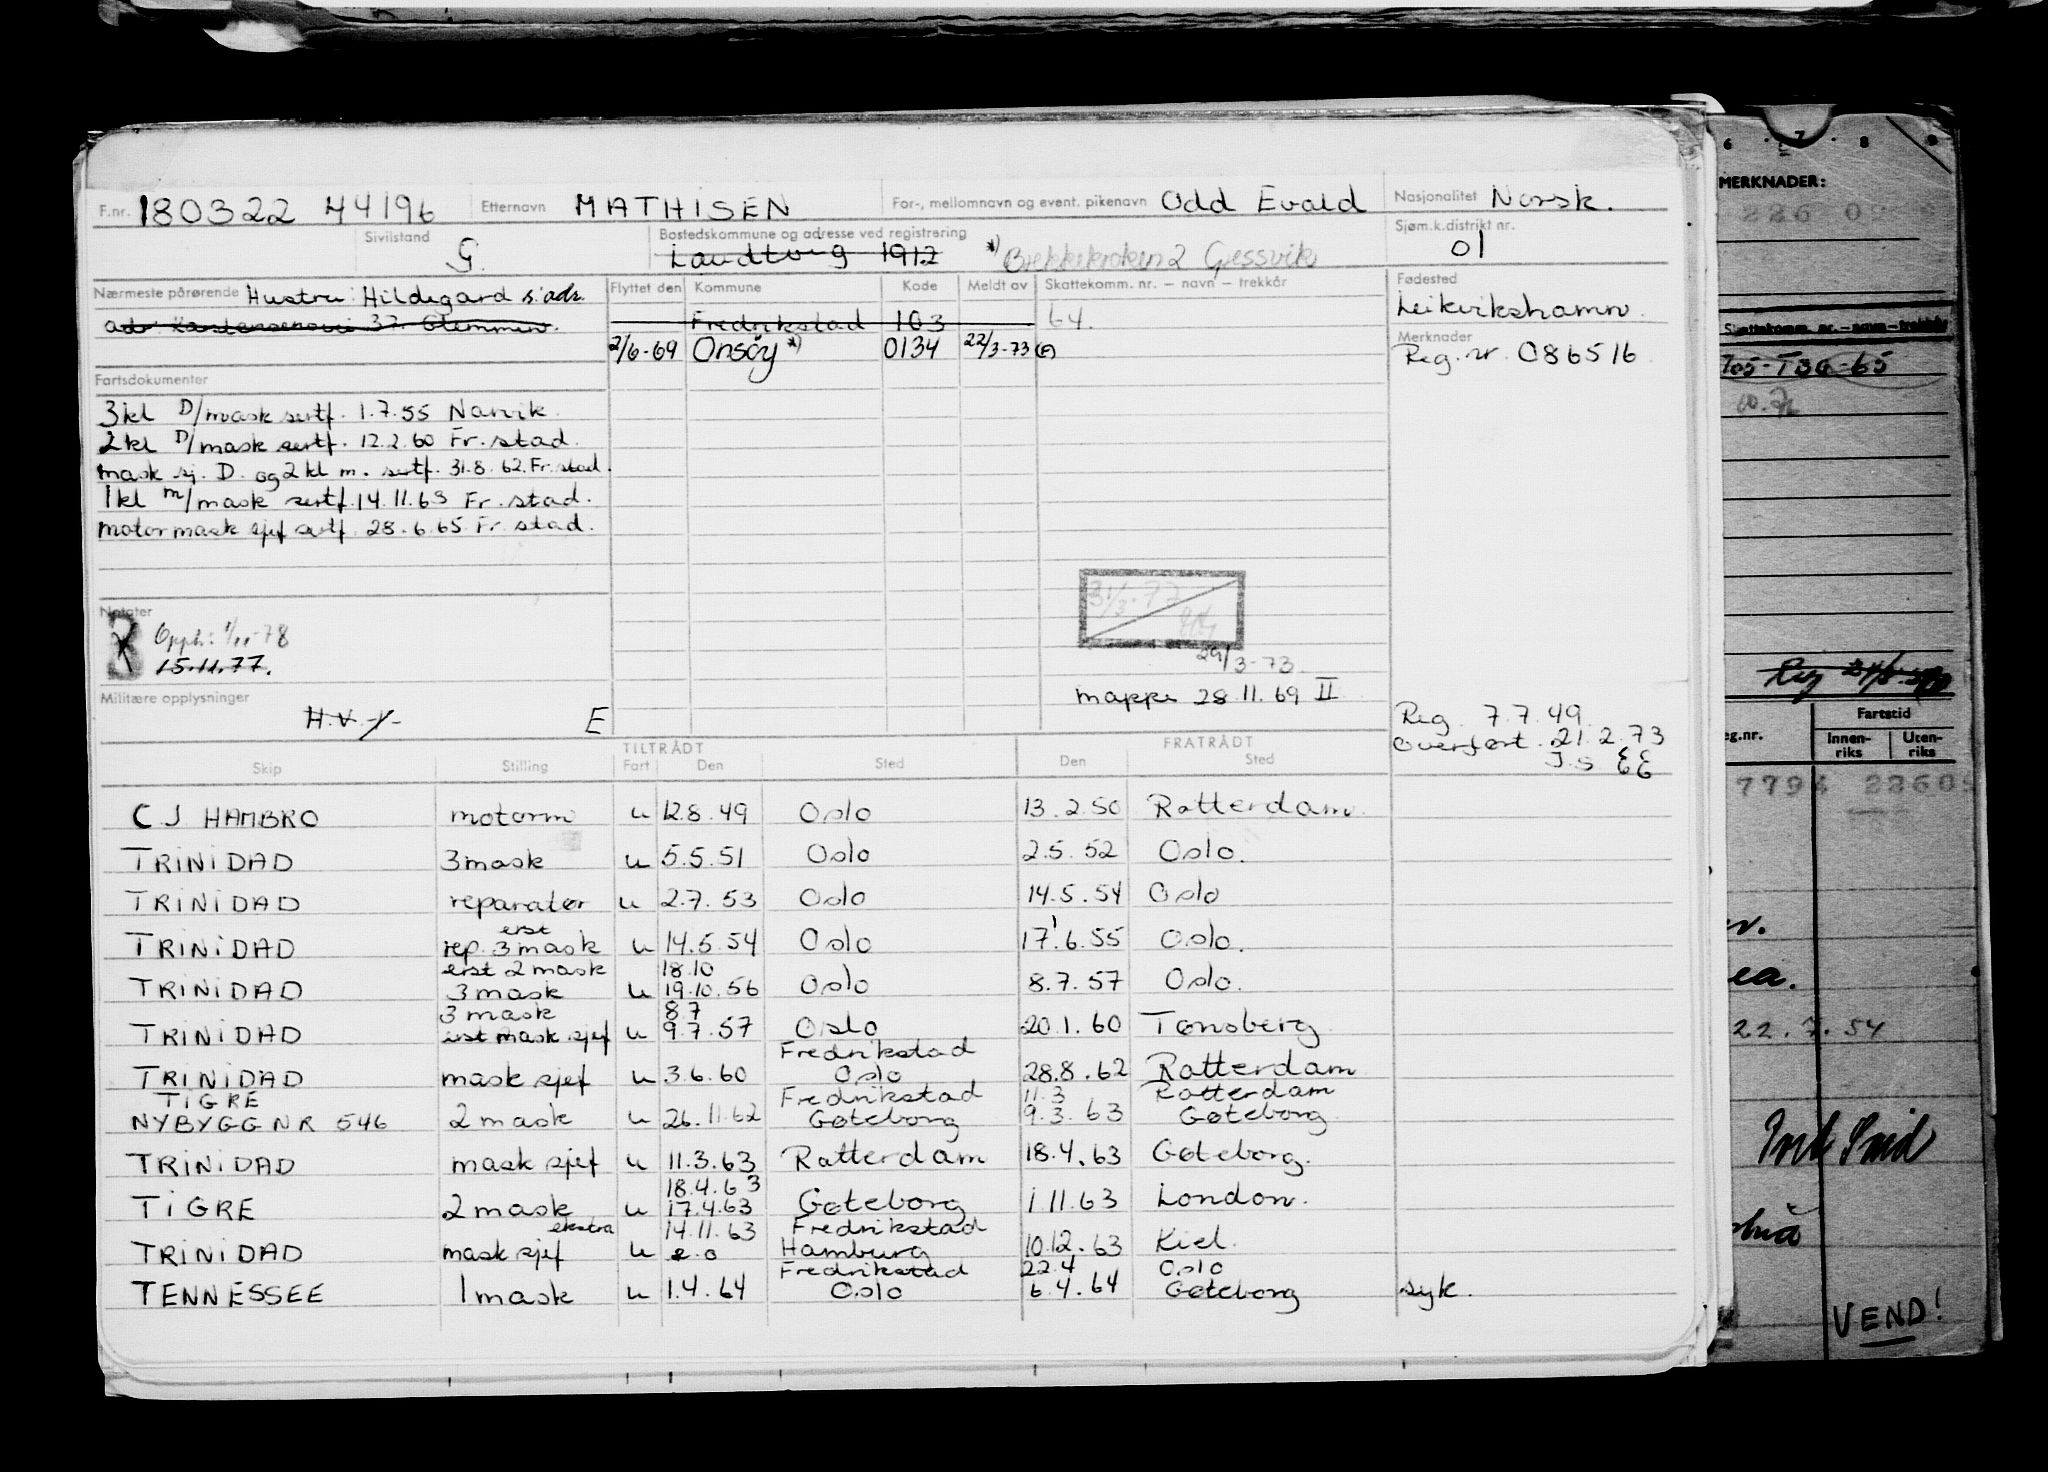 F.nr. 180322 44196 Etternavn MATHISEN For-, mellomnavn og event. pikenavn Odd Evald Nasjonalitet Norsk.
Sivilstand G. Bostedskommune og adresse ved registrering Landtorg 1912 *) Brekkekroken 2 Gressvik Sjøm.k.distrikt nr. 01
Nærmeste pårørende Hustru: Hildegard s. adr. Flyttet den Kommune Kode Meldt av Skattekomm. nr. – navn – trekkår Fødested
37 Glemmen. Fredrikstad 103 64. Leikvikshamn.
2/6-69 Onsøy *) 0134 22/3-73 Merknader
Reg. nr. 086516
Fartsdokumenter
3kl D/mask sertf. 1.7.55 Narvik.
2kl D/mask sertf. 12.2.60 Fr. stad.
mask sj. D. og 2kl m. sertf. 31.8.62. Fr. stad.
1kl m/mask sertf. 14.11.63 Fr. stad.
motormask sjef sertf. 28.6.65 Fr. stad.
31/3.77
Notater
3
Opph: 1/11-78
15.11.77.
29/3-73.
mappe 28.11.69 II
Militære opplysninger
H.V. E
Reg. 7.7.49.
Overført. 21.2.73
J.S
TILTRÅDT FRATRÅDT
Skip Stilling Fart Den Sted Den Sted
CJ HAMBRO motorm u 12.8.49 Oslo 13.2.50 Rotterdam.
TRINIDAD 3 mask u 5.5.51 Oslo 2.5.52 Oslo.
TRINIDAD reparatør u 2.7.53 Oslo 14.5.54 Oslo
erst
TRINIDAD rep. 3 mask u 14.5.54 Oslo 17.6.55 Oslo.
erst 2 mask 18.10
TRINIDAD 3 mask u 19.10.56 Oslo 8.7.57 Oslo.
3 mask 8.7
TRINIDAD erst mask sjef u 9.7.57 Oslo 20.1.60 Tønsberg
Fredrikstad
TRINIDAD mask sjef u 3.6.60 Oslo 28.8.62 Rotterdam
TIGRE Fredrikstad 11.3 Rotterdam
NYBYGG NR 546 2 mask u 26.11.62 Gøteborg 9.3.63 Gøteborg
TRINIDAD mask sjef u 11.3.63 Rotterdam 18.4.63 Gøteborg.
18.4.63
TIGRE 2 mask u 17.4.63 Gøteborg 1.11.63 London.
ekstra 14.11.63 Fredrikstad
TRINIDAD mask sjef u e.o Hamburg 10.12.63 Kiel.
Fredrikstad 22.4 Oslo
TENNESSEE 1 mask u 1.4.64 Oslo 6.4.64 Gøteborg syk.
6 7 8
MERKNADER:
226 0
Skattekomm. nr. – navn – trekkår
Reg
Fartstid
eg.nr. Innen-riks Uten-riks
22.7.54
VEND!